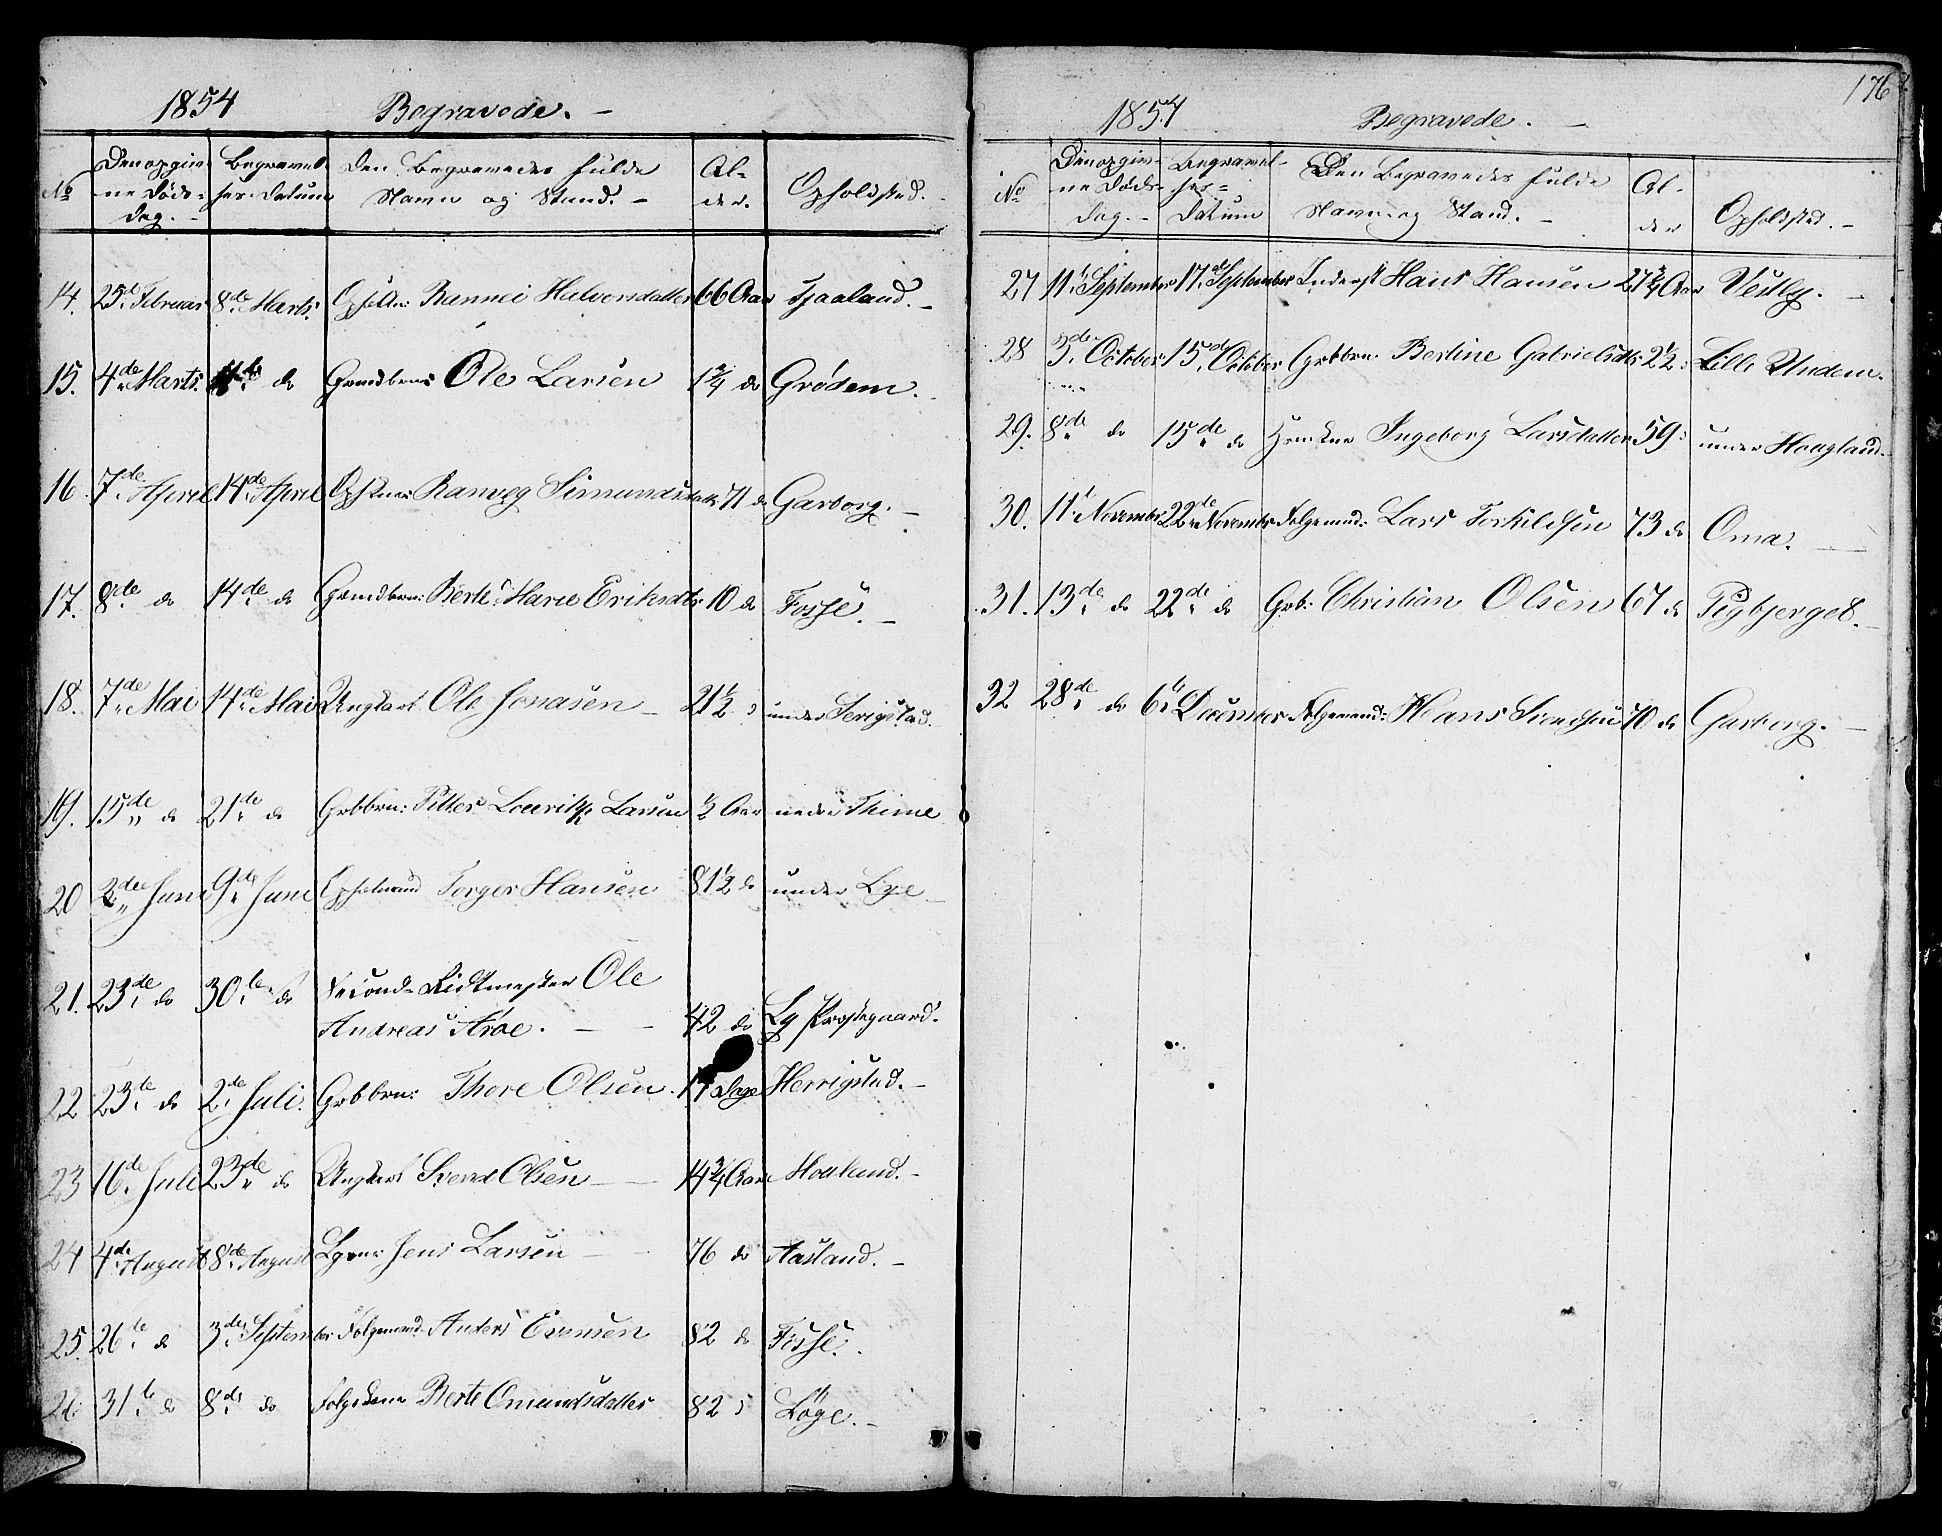 1854 Begravede. —
No Den opgivne Døds-dag. Begravelses-Datum Den Begravedes fulde Navn og Stand. — Alder. Opholdsted.
14. 25de Februar 8de Marts. Rannei Halvorsdatter 66 Aar Tjaaland. —
15. 4de Marts. do Grmdbrns Ole Larsen 1 3/4 do Grødem.
16 7de April 14de April Ranveg Simundsdatter 71 do Garborg. —
17. 8de do 14de do Grmdbrn: Berte Marie Eriksdtr 10 do Fosse. —
18. 7de Mai 14de Mai Ungkarl Ole Jonasen — 21 1/2 : under Serigstad.
19. 15de do 21de do Grbbrn: Petter Lauritz Larsen 1/2 Aar neder Thime
20 2den Juni 9de Juni Torger Hansen 81 1/2 do under Lye —
21. 23de do 30te do Second-Ridtmester Ole
Andreas Aröe. — — 42 do Ly Præstegaard.
22 23de do 2de Juli. Grbbrn: Thore Olsen. 17 Dage Herrigstad. —
23 16de Juli 23de do Ungkarl Svend Olsen — 14 3/4 Aar Houland. —
24 4de August 8de August Jens Larsen — 76 do Aasland. —
25. 26te do 3de September Folgemand Anders Evensen 82 do Fosse.
26 31te do 8de do Folgekone Berte Omundsdatter 82 : Løge. —
176
1854 Begravede. —
No Den opgivne Døds-dag. — Begravelses-Datum Den Begravedes fulde Navn og Stand. — Alder Opholdsted. —
27 11te September 17de September Inderst Hans Hansen 27 3/4 Aar Vestly. —
28 3de October 15de October Grbbrn: Bertine Gabrielsdtr 2 1/2 : Lille Undem.
29. 8de do 15de do Ingeborg Larsdatter 59 : under Haagland.
30. 11te November 22de November Folgemnd: Lars Torkildsen 73 do Oma. —
31. 13de do 22de do Grb: Christian Olsen 67 do Tegbjerget. —
32 28de do 6te December Folgemand: Hans Svendsen 70 do Garborg. —